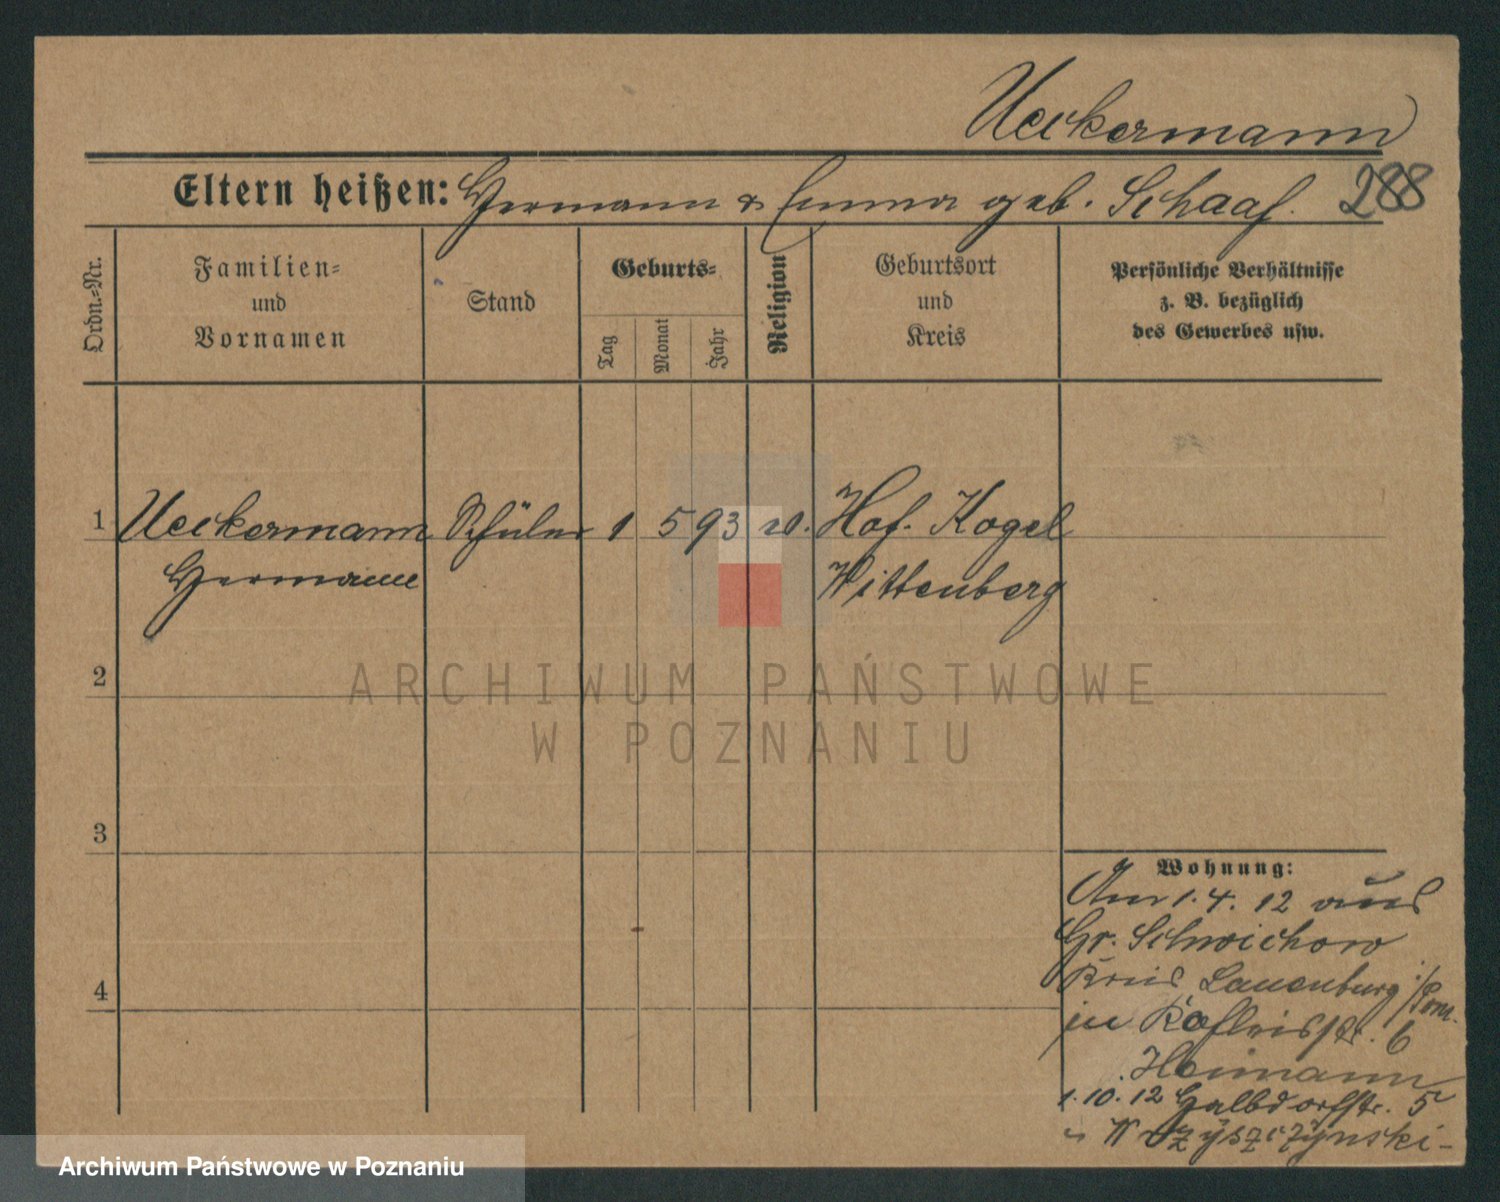 Ueckermann
Eltern heißen: Hermann & Emma geb. Schaaf.
288
Ordn.-Nr.
Familien-
und
Vornamen
Stand
Geburts-
Tag
Monat
Jahr
Religion
Geburtsort
und
Kreis
Persönliche Verhältnisse
z. B. bezüglich
des Gewerbes usw.
1 Ueckermann Schüler 1 5 93 Hof. Kogel
Hermann Wittenberg
2
3
4
Wohnung:
Am 1. 4. 12 aus
Gr. Schwichow
Kreis Lauenburg i/Pom.
in 6
Heimann
1. 10. 12 Halbdorfstr. 5
ARCHIWUM PAŃSTWOWE
W POZNANIU
Archiwum Państwowe w Poznaniu